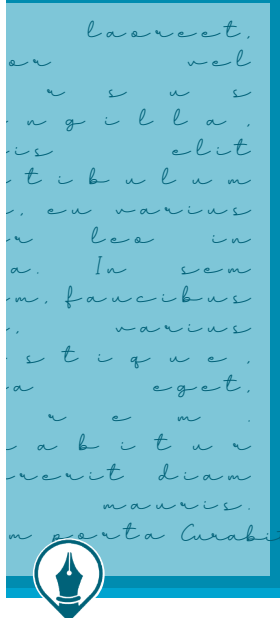 laoreet,
or vel
r s u s
n g i l l a ,
is elit
t i b u l u m
, eu varius
r leo in
a. In sem
m, faucibus
, varius
s t i q u e ,
a eget,
r e m .
a b i t u r
rerit diam
mauris.
m porta Curabi